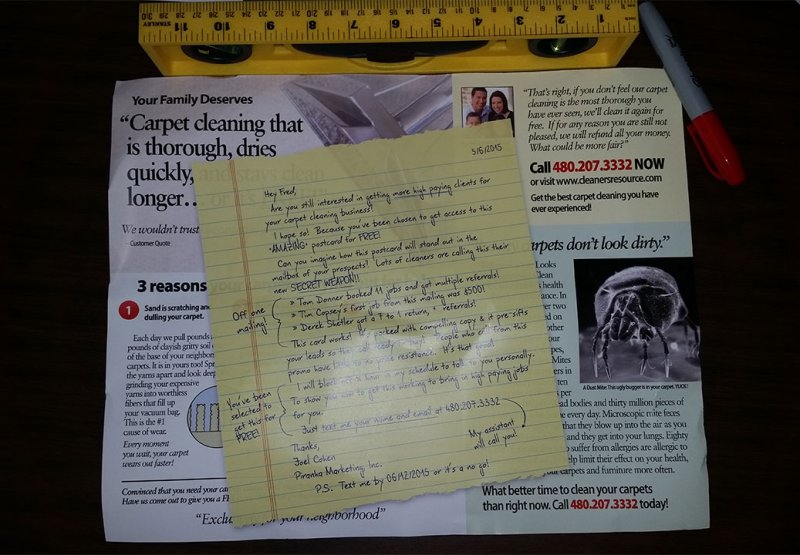 Your Family Deserves
"Carpet cleaning that
is thorough, dries
quickly, and stays clean
longer…
We wouldn't trust
- Customer Quote
3 reasons
1 Sand is scratching and
dulling your carpet.
Each day we pull pounds
pounds of clayish gritty soil
of the base of your neighbor
carpets. It is in yours too! Spr
the yarns apart and look dee
grinding your expensive
yarns into worthless
fibers that fill up
your vacuum bag.
This is the #1
cause of wear.
Every moment
you wait, your carpet
wears out faster!
Convinced that you need your car
Have us come out to give you a F
"Exclus for your neighborhood"
5/6/2015
Hey Fred,
Are you still interested in getting more high paying clients for
your carpet cleaning business?
I hope so! Because you've been chosen to get access to this
*AMAZING* postcard for FREE!
Can you imagine how this postcard will stand out in the
mailbox of your prospects? Lots of cleaners are calling this their
new SECRET WEAPON!!
Off one
mailing!
» Tom Donner booked 11 jobs and got multiple referrals!
» Tim Copsey's first job from this mailing was $500!
» Derek Sketler got a 7 to 1 return, + referrals!
This card works! It's packed with compelling copy & it pre-sifts
your leads so they call ready to buy! People who call from this
promo have little to no price resistance. It's that good!
I will block out ½ hour in my schedule to talk to you personally.
To show you how to get this working to bring in high paying jobs
for you.
You've been
selected to
get this for
FREE!
Just text me your name and email at 480.207.3332
My assistant
will call you!
Thanks,
Joel Cohen
Piranka Marketing Inc.
P.S. Text me by 06/12/2015 or it's a no go!
"That's right, if you don't feel our carpet
cleaning is the most thorough you
have ever seen, we'll clean it again for
free. If for any reason you are still not
pleased, we will refund all your money.
What could be more fair?"
Call 480.207.3332 NOW
or visit www.cleanersresource.com
Get the best carpet cleaning you have
ever experienced!
rpets don't look dirty."
Looks
Clean
s health
ce. In
er two
d on
other
your
Mites
ten
per
A Dust Mite: This ugly bugger is in your carpet. YUCK!
ad bodies and thirty million pieces of
e every day. Microscopic mite feces
that they blow up into the air as you
and they get into your lungs. Eighty
o suffer from allergies are allergic to
help limit their effect on your health,
ur carpets and furniture more often.
What better time to clean your carpets
than right now. Call 480.207.3332 today!
STANLEY
11 10 9 8 7 6 5 4 3 2 1
Sharpie